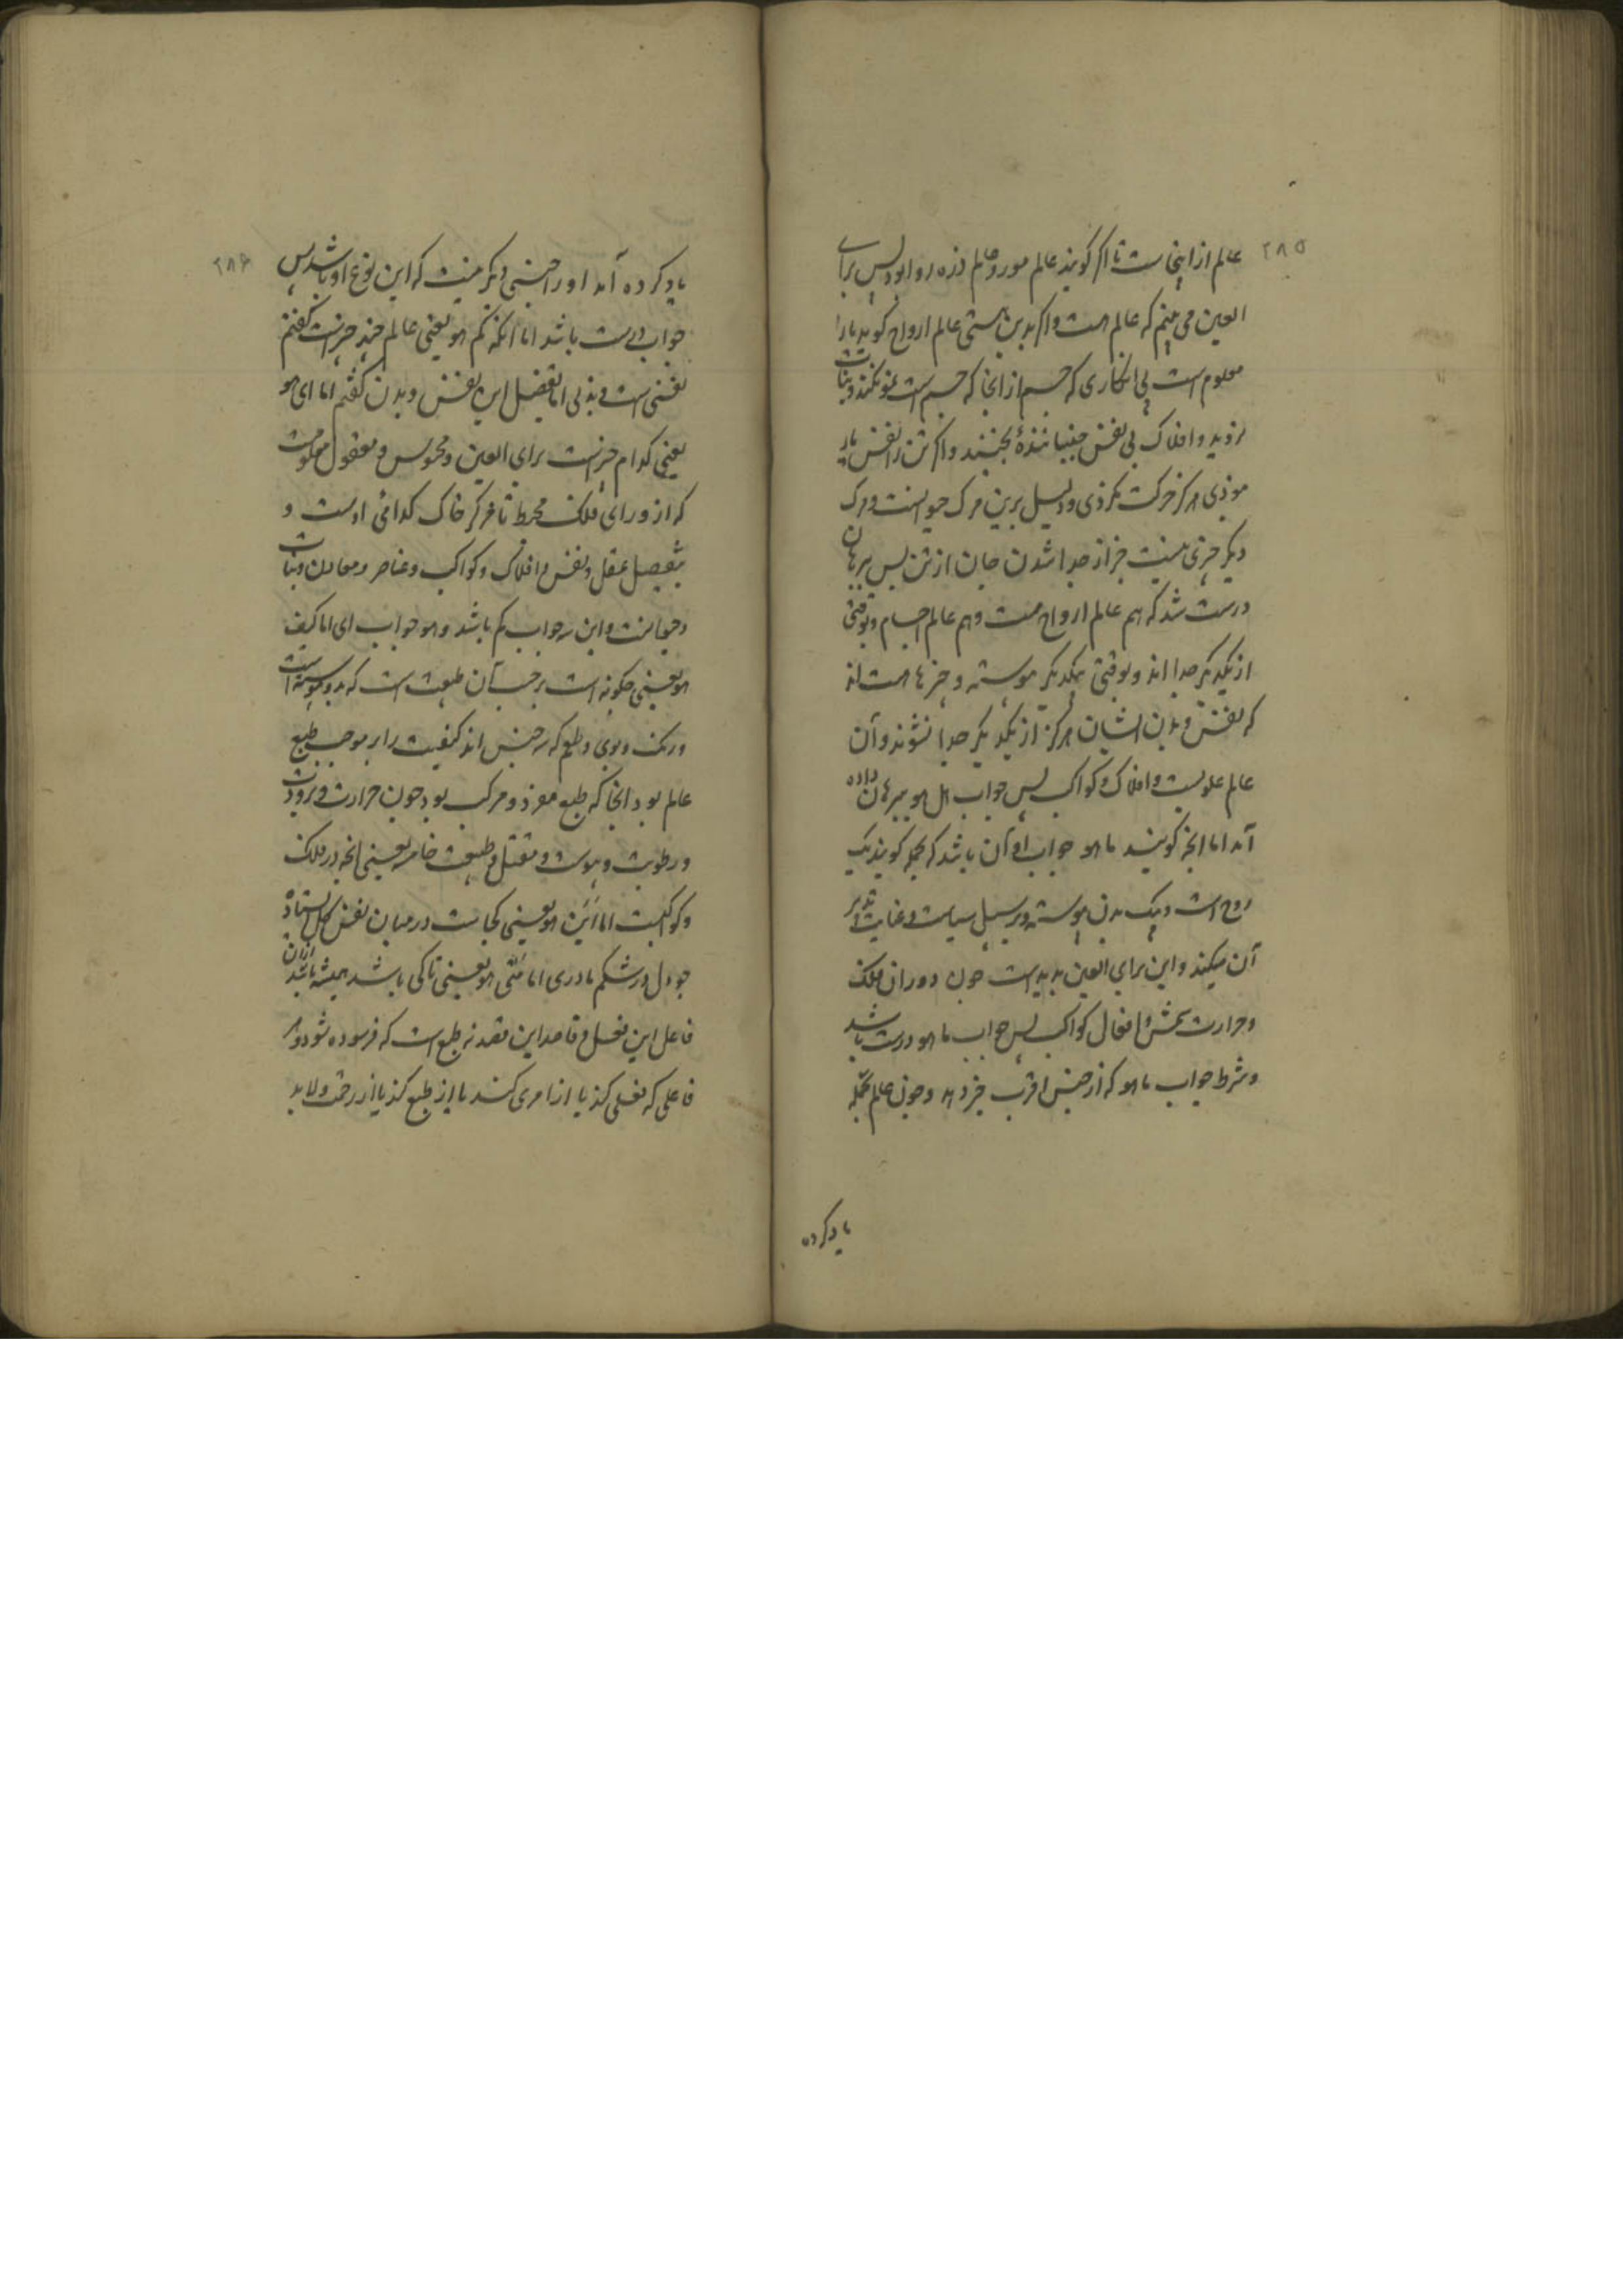 ۲۸۵
عالم از اینجاست تا اگر گویند عالم مور و عالم ذره روا بود پس برای
العین می بینم که عالم هست و اگر بدین هستی عالم ارواح گوید ما را
معلوم است بی انکاری که جسم از انجا که جسم است نمو نکند و نبات
نروید و افلاک بی نفس جنباننده نجنبند و اگر تن را نفس یار
نبوذی هرکز حرکت نکرذی و دلیل برین مرک حیوانست و مرک
دیکر چیزی نیست جز از جدا شدن جان از تن پس ببرهان
درست شد که هم عالم ارواح هست و هم عالم اجسام و بوقتی
از یکدیکر جدا اند و بوقتی بیکدیکر پیوسته و چیزها هست اند
که نفس و بدن ایشان هرکز از یکدیکر جدا نشوند و آن
عالم علویست و افلاک و کواکب پس جواب هل هو ببرهان داده
آمد اما انچه گویند ما هو جواب او آن باشد که بجمله گویند یک
روح است و یک بدن پیوسته و بر سبیل سیاست و غایت تدبیر
آن میکند و این برای العین بدیدست چون دوران فلک
و حرارت شمس و افعال کواکب پس جواب ما هو درست باشد
و شرط جواب ما هو که از جنس اقرب خبر دهد و چون عالم بجمله
یاد کرده
۲۸۶
یاد کرده آمد او را جنسی دیکر نیست که این نوع او باشد پس
جواب درست باشد اما انکه کم هو یعنی عالم چند چیزست گفتم
نفسی است و بدنی اما تفصیل این نفس و بدن گفتم اما ای هو
یعنی کدام چیزست برای العین و محسوس و معقول معلومست
که از ورای فلک محیط تا مرکز خاک کدامی اوست و
بتفصیل عقل و نفس و افلاک و کواکب و عناصر و معادن و نبات
و حیوانست و این جواب کم باشد و هم جواب ای اما کیف
هو یعنی چکونه است بر حسب آن طبیعت است که بدو پیوسته است
و رنک و بوی و طعم که سه جنس اند کیفیت را بر موجب طبع
عالم بود انجا که طبع مفرد و مرکب بود چون حرارت و برودت
و رطوبت و یبوست و ثقل و طبیعت خامسه یعنی انچه در فلک
و کوکبست اما این هو یعنی کجاست در میان نفس کل ایستاده
چو دل در شکم مادری اما متی هو یعنی تا کی باشد همیشه باشد ازان
فاعل این فعل و قاصد این قصد نه طبع است که فرسوده شود و هر
فاعلی که فعلی کند یا از امری کند یا از طبع کند یا از رخت و لابد